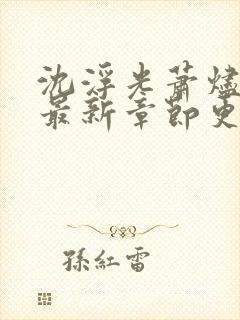 沈浮光萧烬
最新章節更
孫紅雷